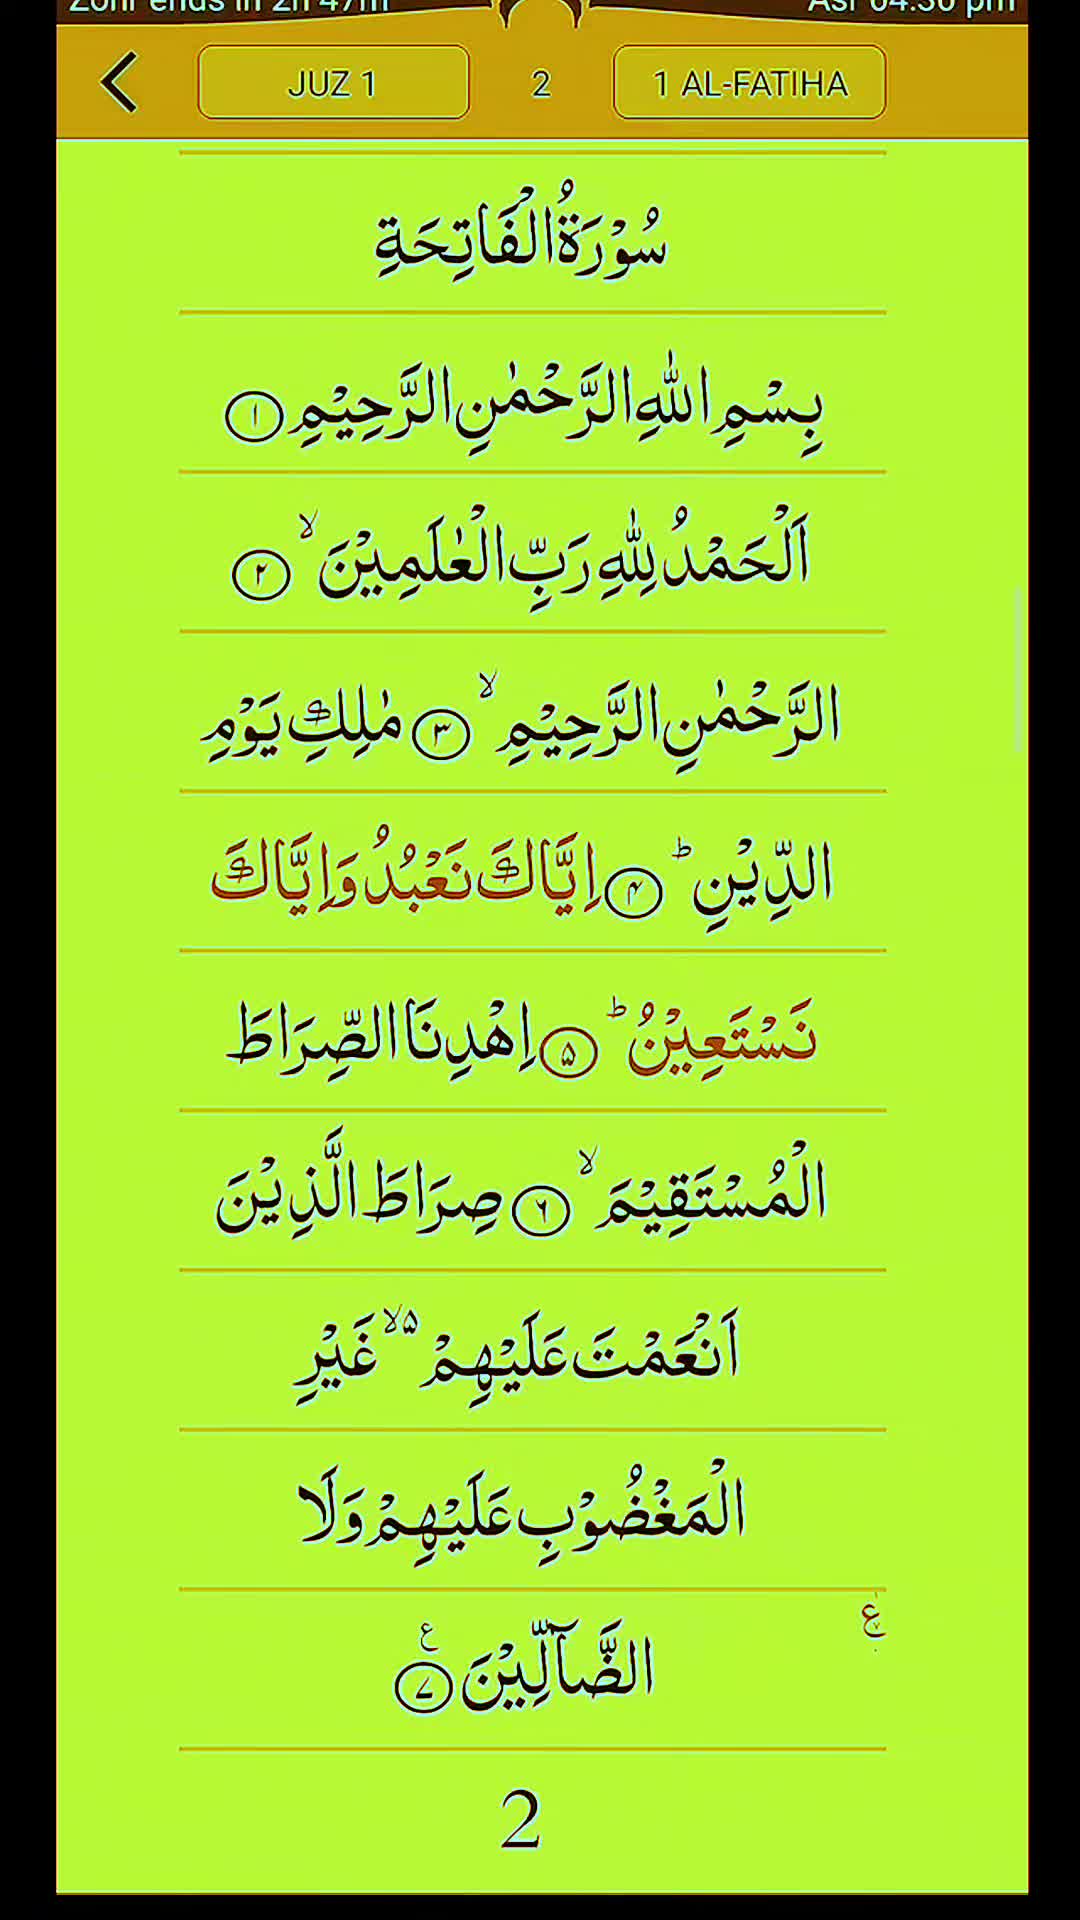 Zohr ends in 2h 47m Asr 04:30 pm
JUZ 1 2 1 AL-FATIHA
سُوْرَةُ الْفَاتِحَةِ
بِسْمِ اللّٰهِ الرَّحْمٰنِ الرَّحِيْمِ ١
اَلْحَمْدُ لِلّٰهِ رَبِّ الْعٰلَمِيْنَ ۙ ٢
الرَّحْمٰنِ الرَّحِيْمِ ۙ ٣ مٰلِكِ يَوْمِ
الدِّيْنِ ؕ ۴ اِيَّاكَ نَعْبُدُ وَاِيَّاكَ
نَسْتَعِيْنُ ؕ ۵ اِهْدِنَا الصِّرَاطَ
الْمُسْتَقِيْمَ ۙ ۶ صِرَاطَ الَّذِيْنَ
اَنْعَمْتَ عَلَيْهِمْ ۵ ۙ غَيْرِ
الْمَغْضُوْبِ عَلَيْهِمْ وَلَا
الضَّآلِّيْنَ ع ٧
2